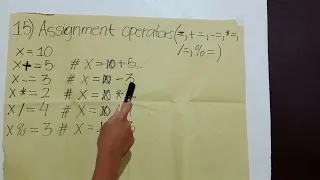 15) Assignment operators (=, + =, - =, *=,
/=, %=)
x = 10
x + = 5 # x = 10 + 5
x - = 3 # x = 10 - 3
x * = 2 # x = 10 *
x / = 4 # x = 10
x % = 3 # x =